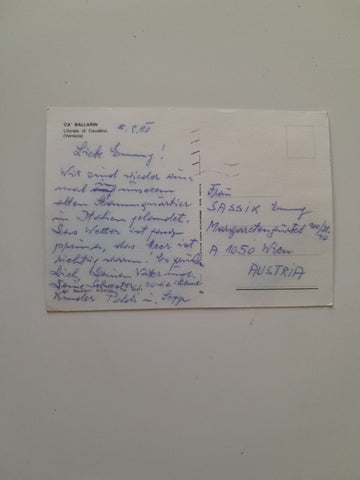 CA' BALLARIN
Litorale di Cavallino
(Venezia)
Liebe Emmy!
Wir sind wieder ein-
mal in unserem
alten Stammquartier
in Italien gelandet.
Das Wetter ist ganz
prima, das Meer ist
richtig warm! Es grüßen
Dich, Deinen Vater und
Deine Schwester sowie
Kinder Poldi u. Sepp
Frau
SASSIK Emmy
Margaretengürtel
A 1050 Wien
AUSTRIA